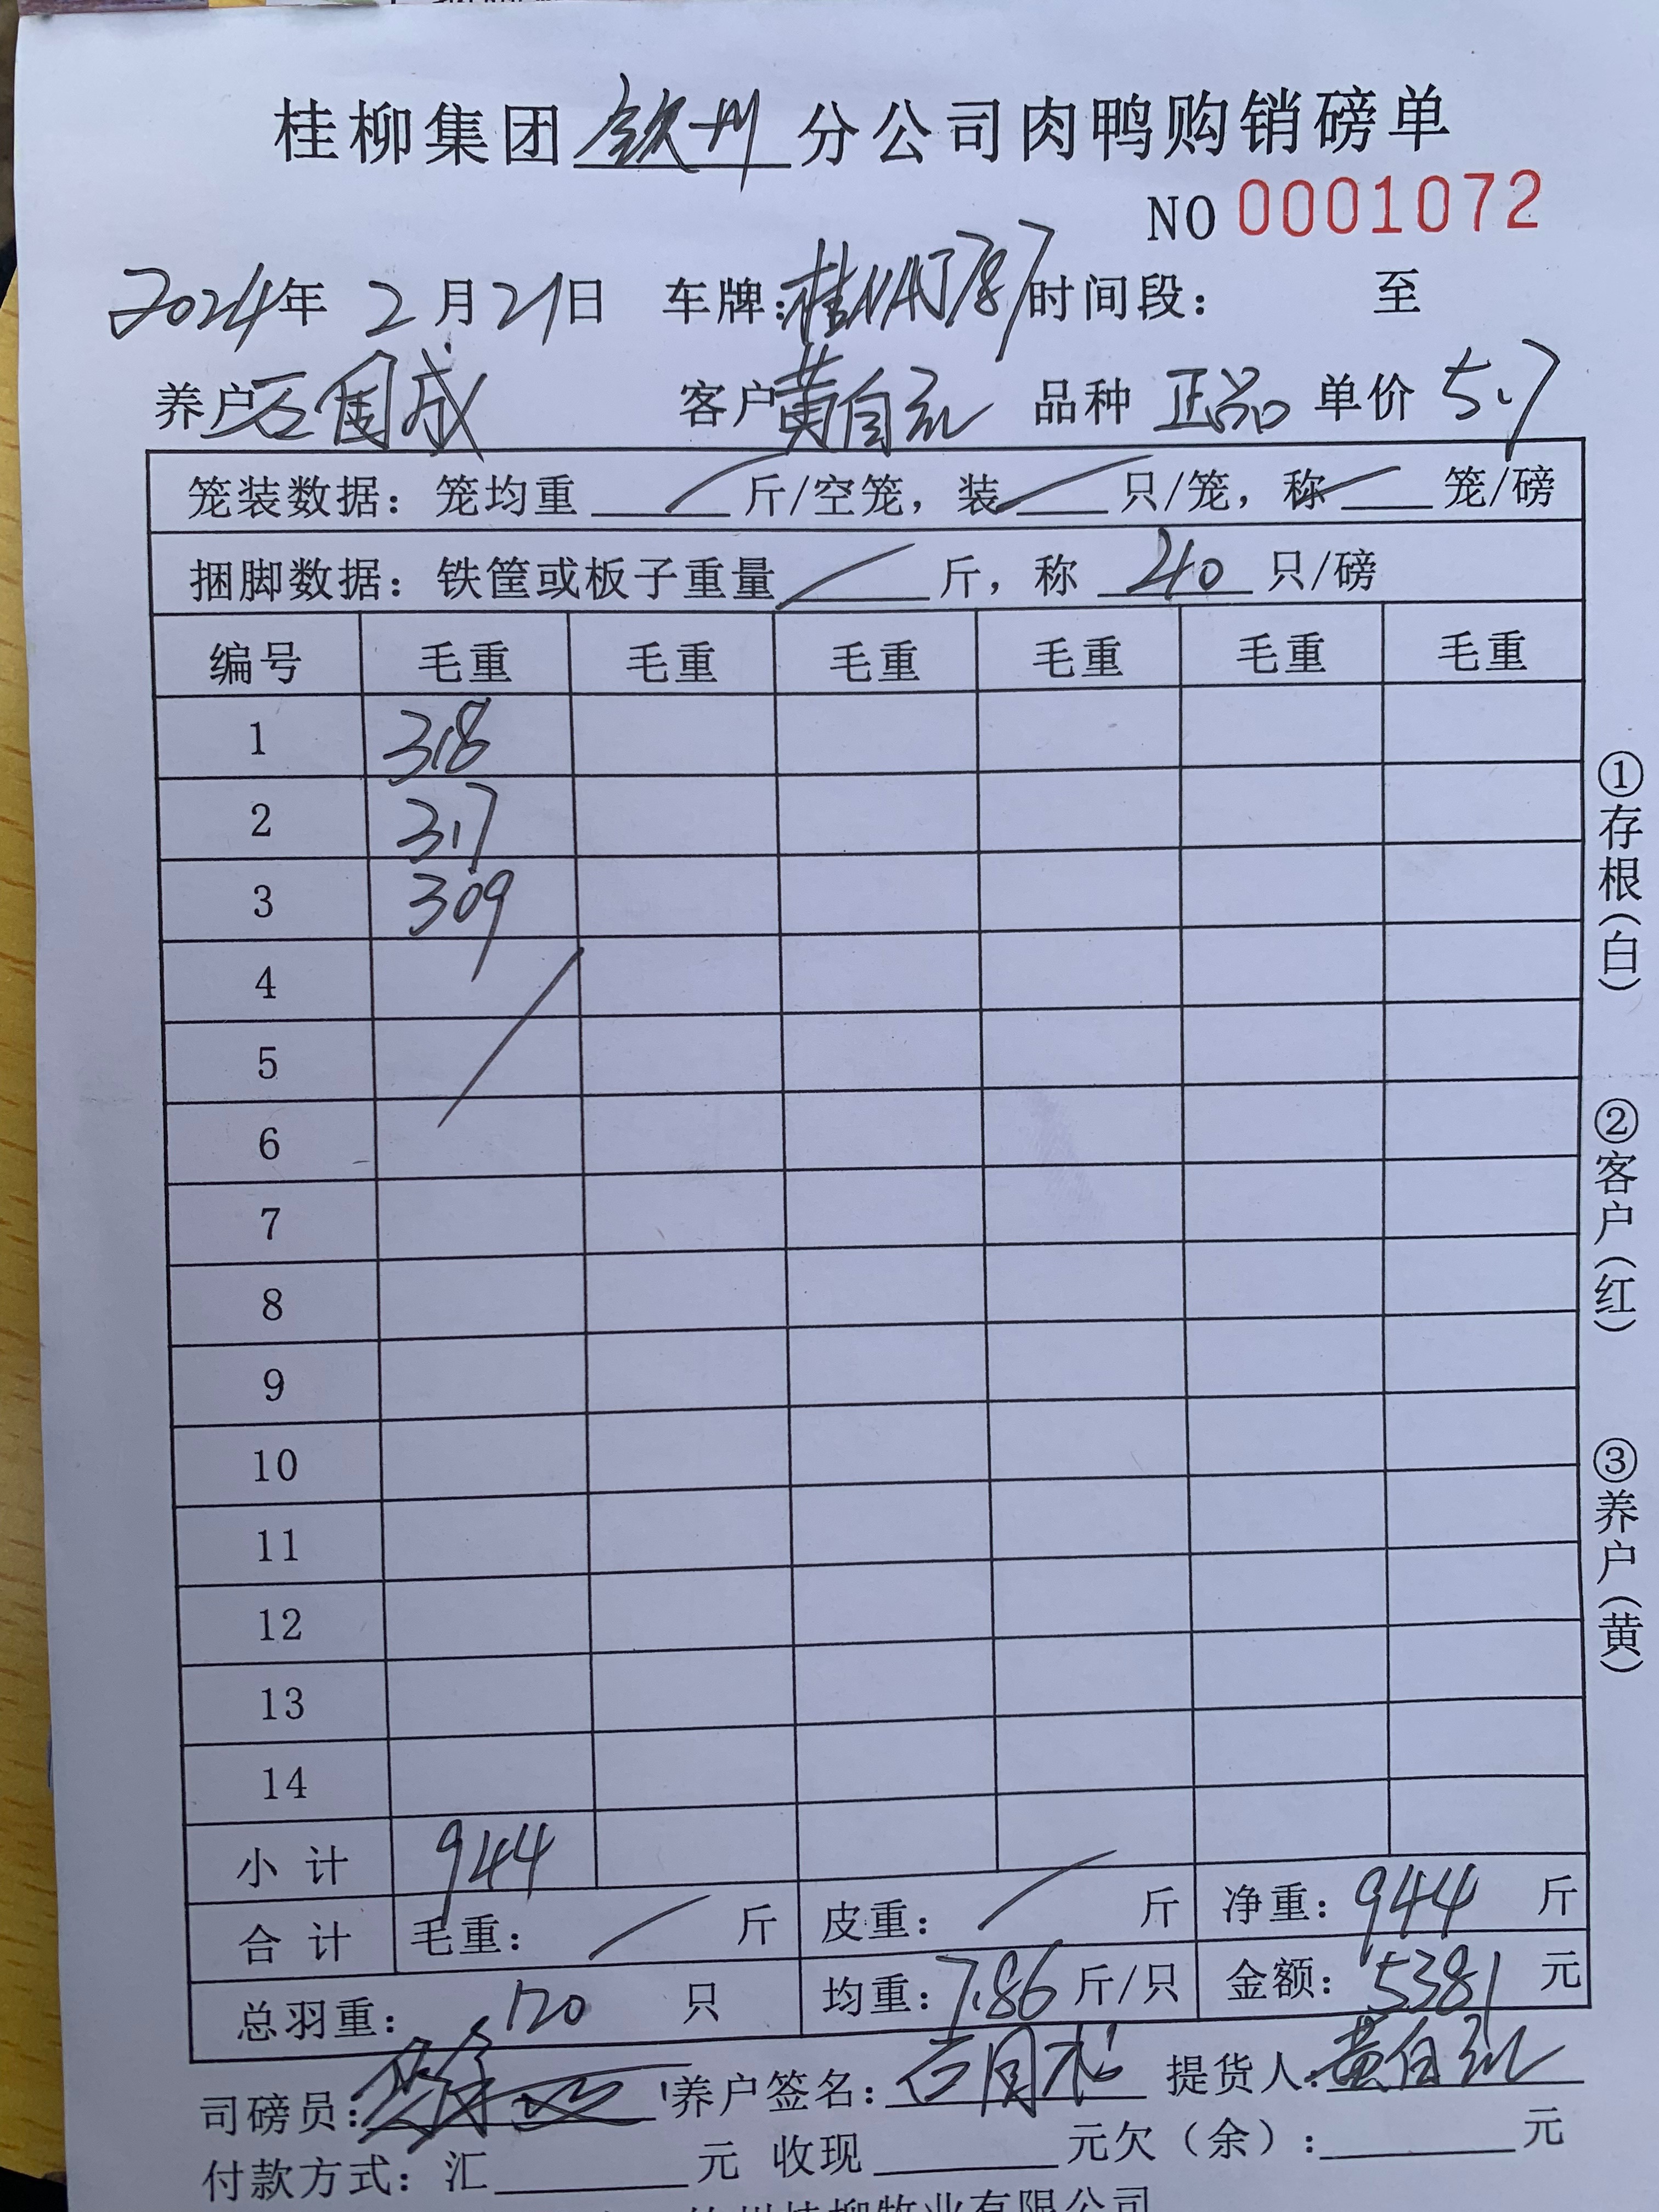 桂柳集团钦州分公司肉鸭购销磅单
NO 0001072
2024年 2月21日 车牌: 时间段: 至
养户石国成 客户黄自 品种 正品 单价 5.7
笼装数据: 笼均重 斤/空笼, 装 只/笼, 称 笼/磅
捆脚数据: 铁筐或板子重量 斤, 称 40 只/磅
编号 毛重 毛重 毛重 毛重 毛重 毛重
1 318
2 317
3 309
4
5
6
7
8
9
10
11
12
13
14
小计 944
合计 毛重: 斤 皮重: 斤 净重: 944 斤
总羽重: 120 只 均重: 7.86 斤/只 金额: 5381 元
司磅员: 养户签名: 提货人: 黄自
付款方式: 汇 元 收现 元欠(余): 元
钦州桂柳牧业有限公司
①存根(白)
②客户(红)
③养户(黄)